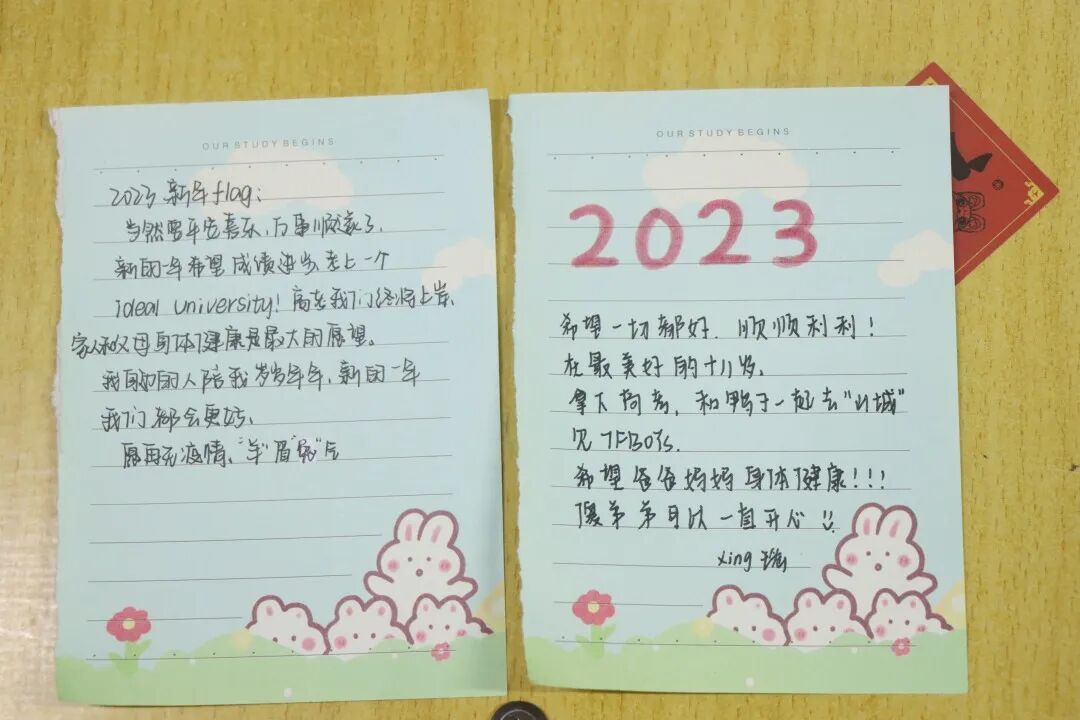 OUR STUDY BEGINS
2023 新年flag:
当然要平安喜乐,万事顺遂了.
新的一年希望成绩进步,考上一个
ideal university! 高考我们终将上岸,
家人和父母身体健康是最大的愿望。
我的人陪我岁岁年年,新的一年
我们都会更好.
愿再无疫情、"羊"眉"兔"气
OUR STUDY BEGINS
2023
希望一切都好.顺顺利利!
在最美好的十八岁.
拿下高考,和鸭子一起去"山城"
见TFBOYS.
希望爸爸妈妈身体健康!!!
傻弟弟可以一直开心
xing